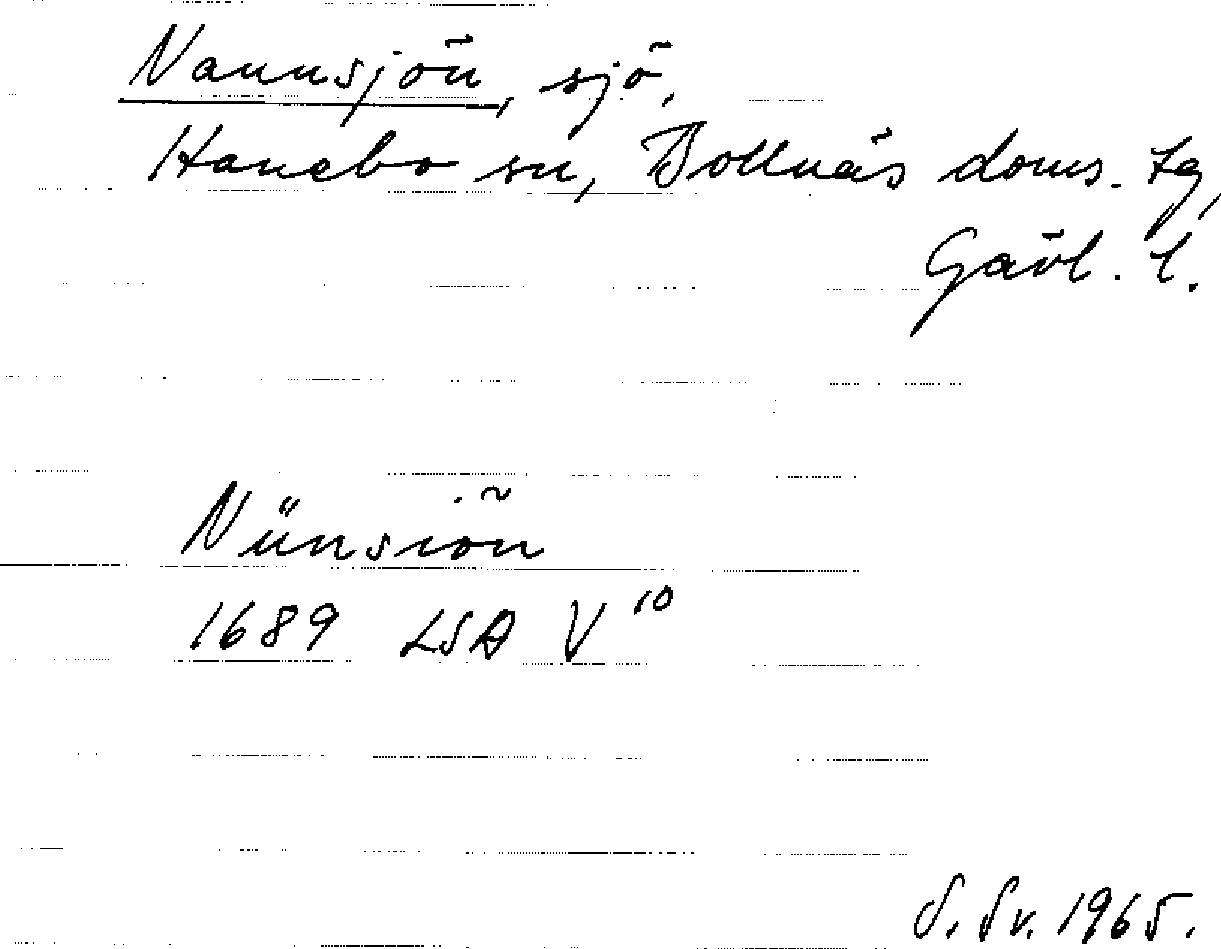 Nannsjön, sjö,
Hanebo sn, Bollnäs doms. tg,
Gävl. l.
Nünsiön
1689 LSA V¹⁰
S. Sv. 1965.